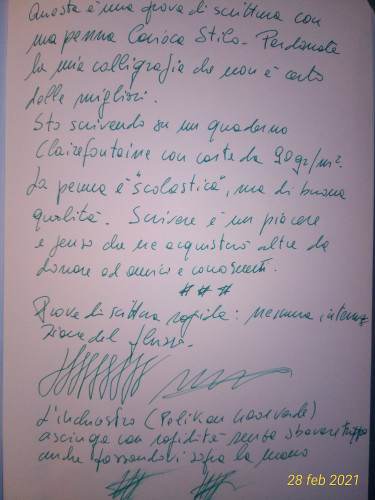 Questa è una prova di scrittura con
una penna Carioca Stilo. Perdonate
la mia calligrafia che non è certo
delle migliori.
Sto scrivendo su un quaderno
Clairefontaine con carta da 90 gr/m².
La penna è "scolastica", ma di buona
qualità. Scrivere è un piacere
e penso che ne acquisterò altre da
donare ad amici e conoscenti.
# # #
Prove di scrittura rapida: nessuna interru
zione del flusso.
L'inchiostro (Pelikan verde)
asciuga con rapidità senza sbavare troppo
anche passandovi sopra la mano
28 feb 2021